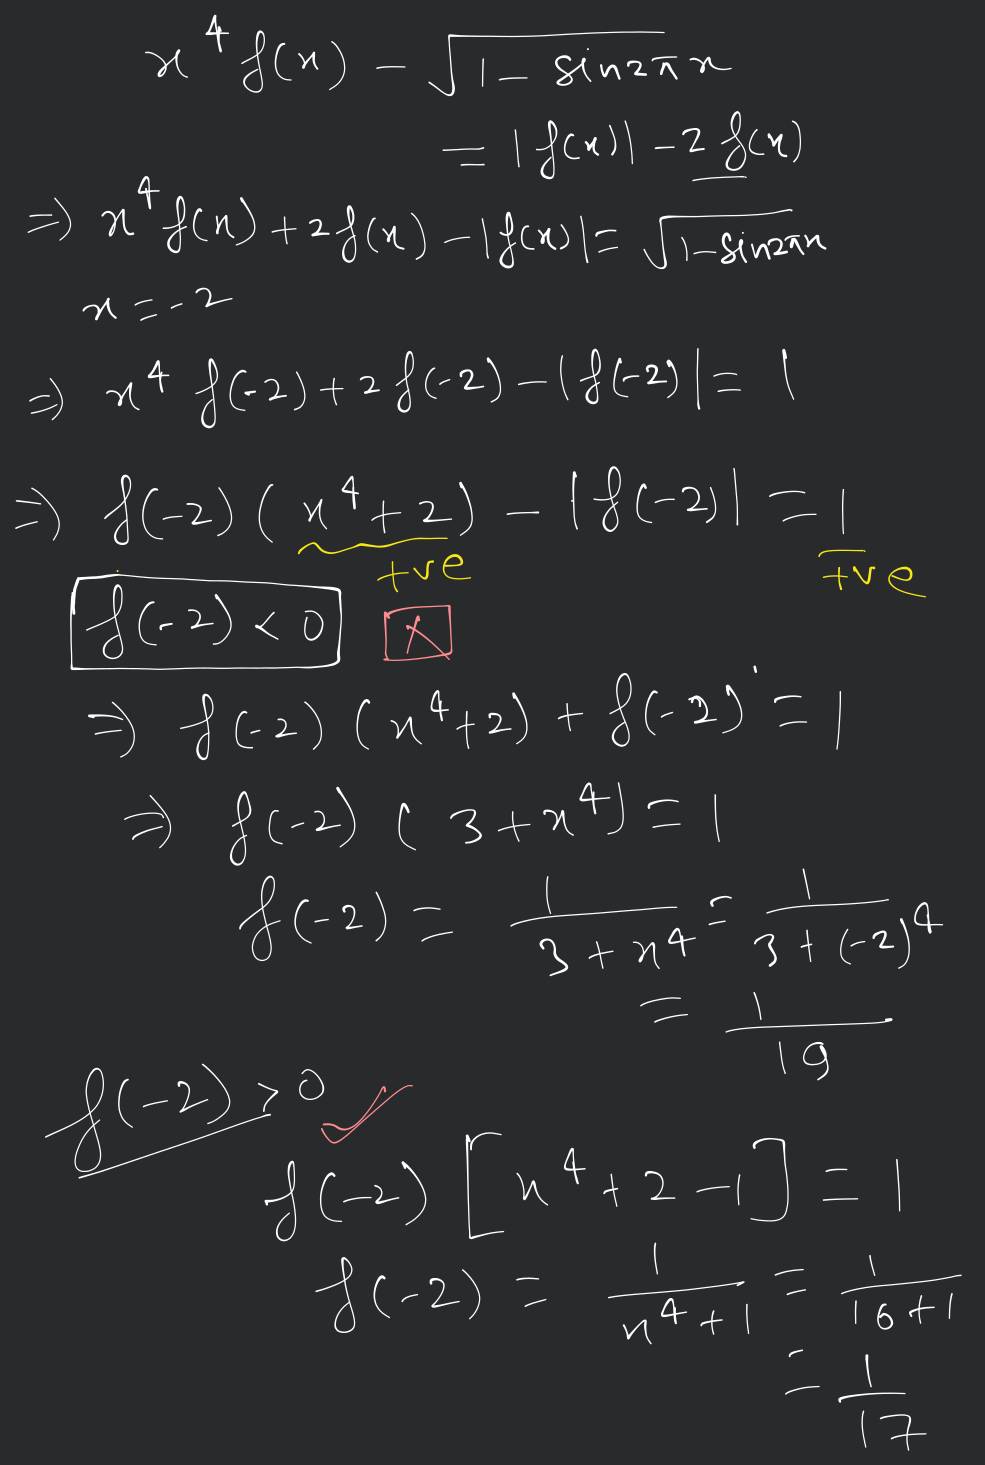 x⁴ f(x) - √(1 - sin2πx)
= |f(x)| - 2 f(x)
⇒ x⁴ f(x) + 2f(x) - |f(x)| = √(1-sin2πx)
x = -2
⇒ x⁴ f(-2) + 2f(-2) - |f(-2)| = 1
⇒ f(-2) (x⁴ + 2) - |f(-2)| = 1
+ve +ve
f(-2) < 0 X
⇒ f(-2) (x⁴+2) + f(-2) = 1
⇒ f(-2) (3 + x⁴) = 1
f(-2) = 1/(3 + x⁴) = 1/(3 + (-2)⁴)
= 1/19
f(-2) > 0 ✓
f(-2) [x⁴ + 2 - 1] = 1
f(-2) = 1/(x⁴ + 1) = 1/(16 + 1)
= 1/17